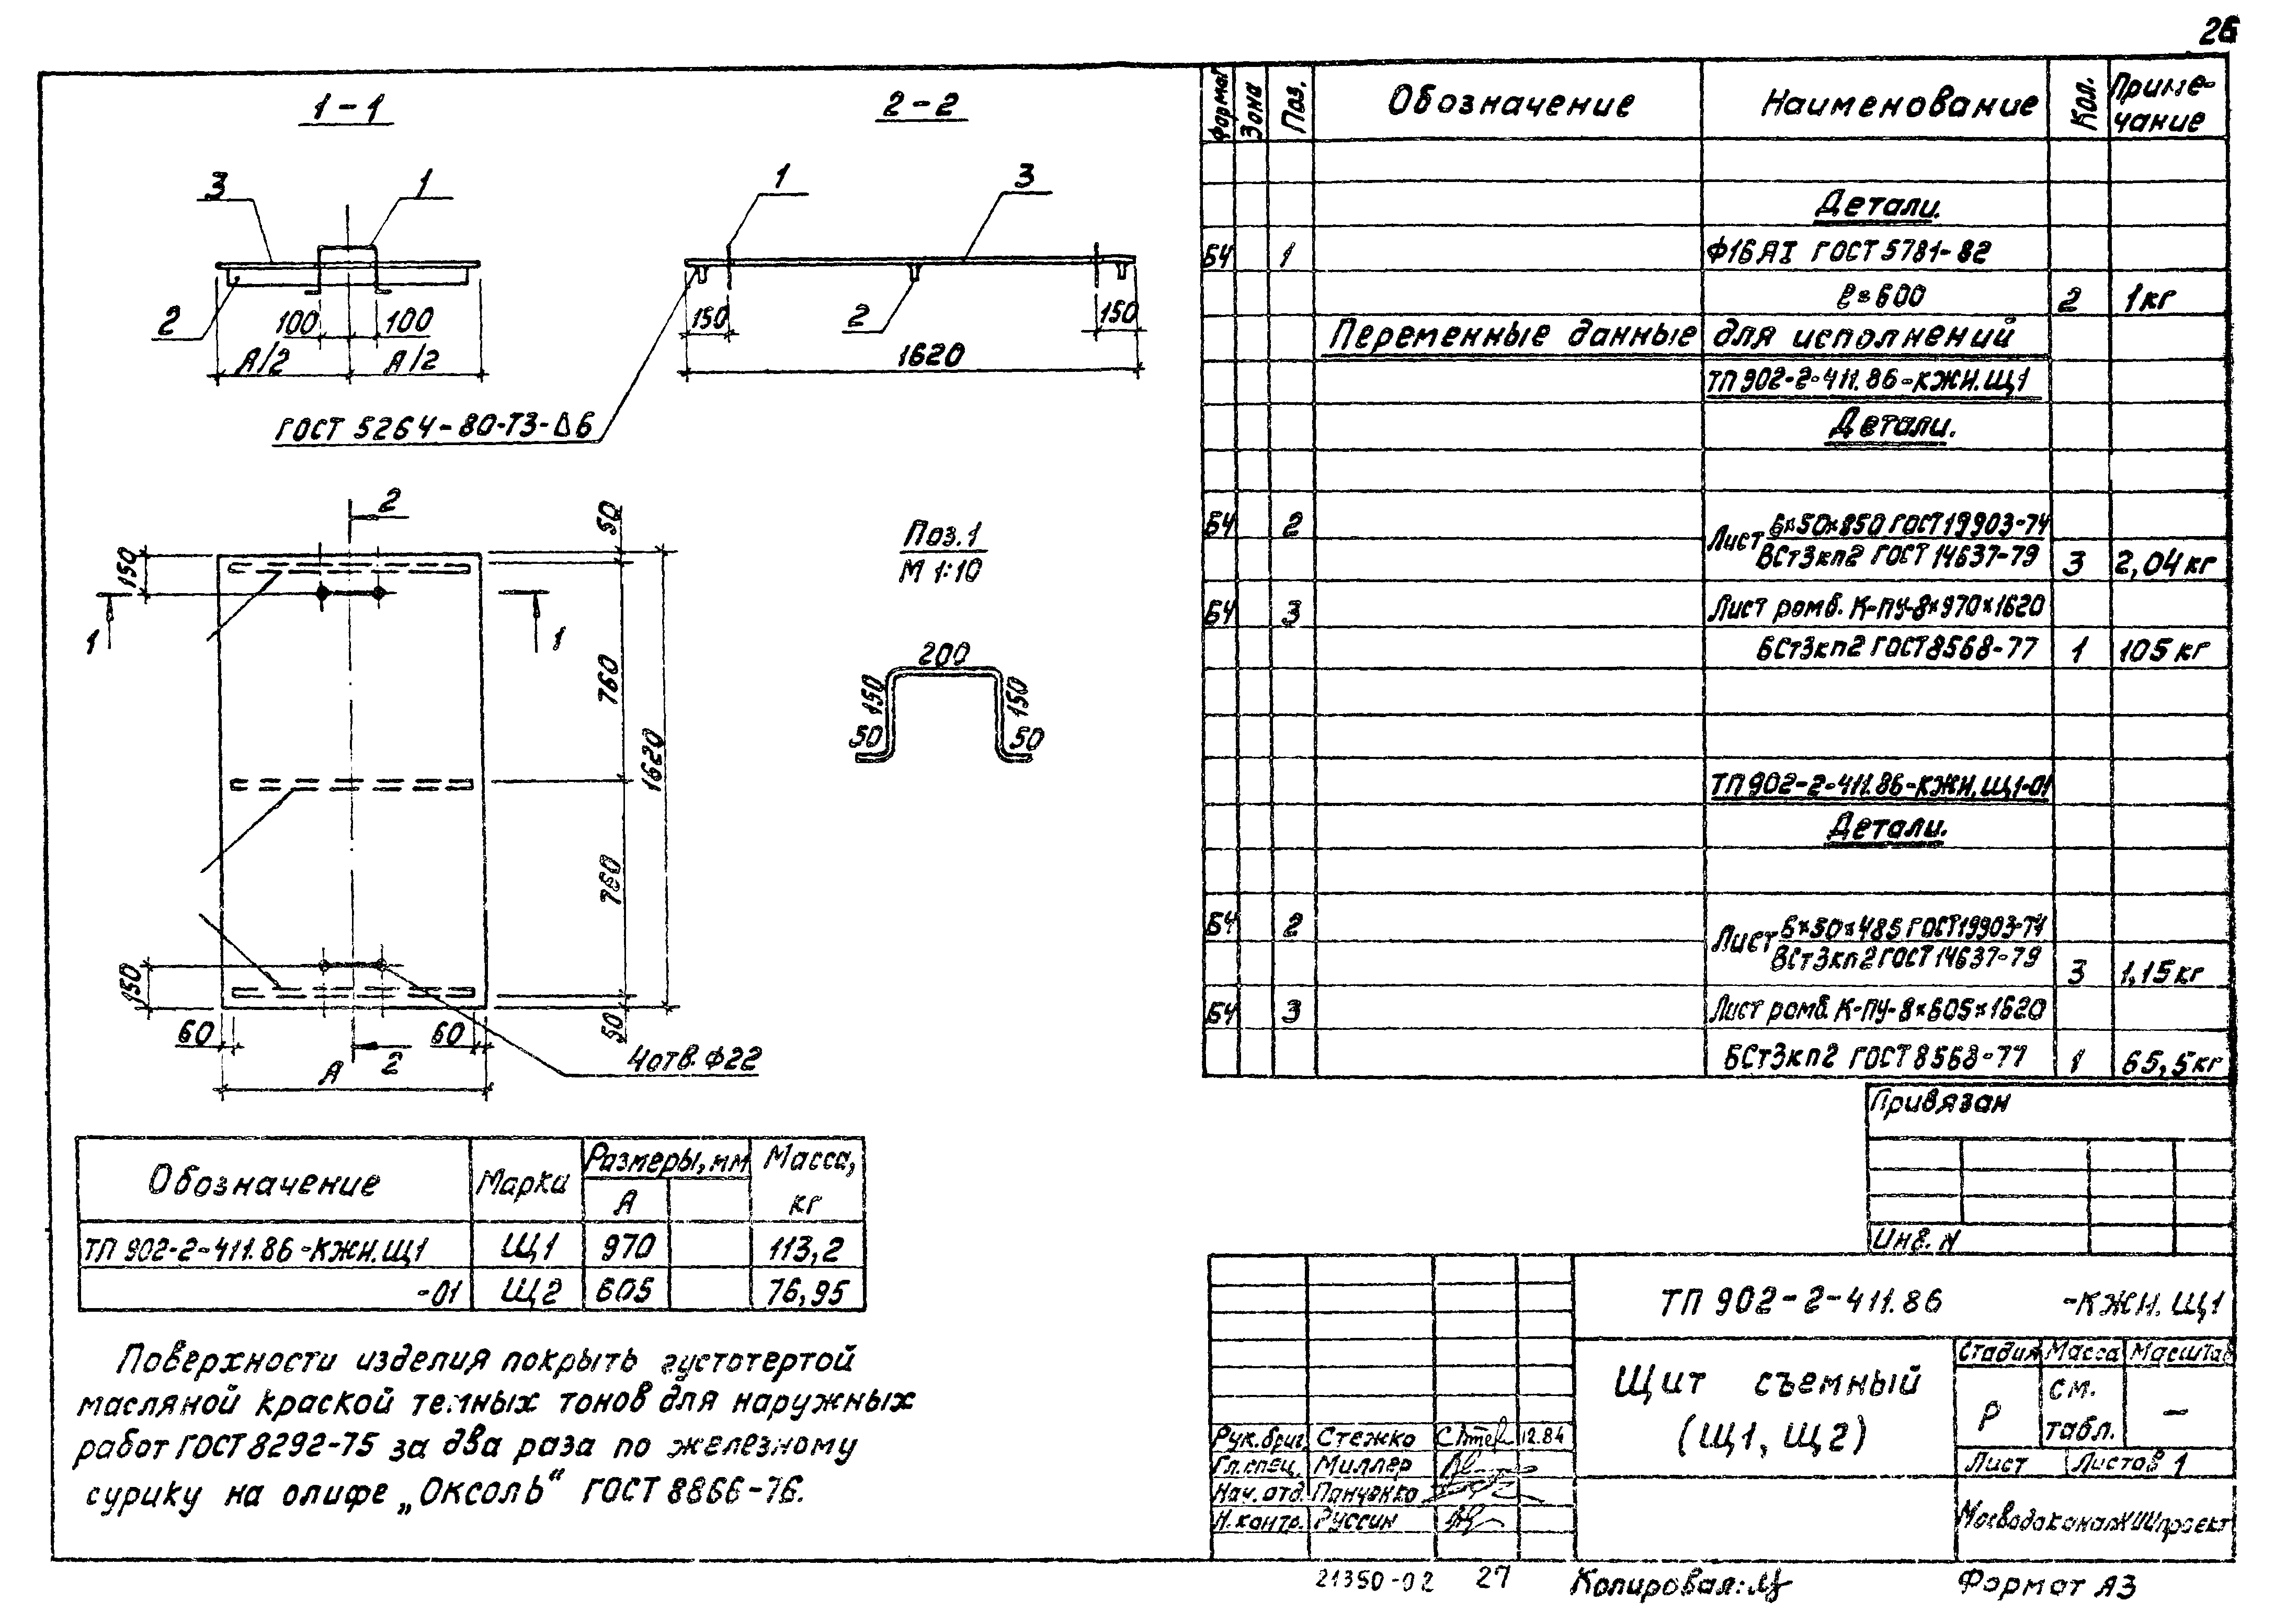 26
1-1
2-2
3
1
2
100
100
А/2
А/2
1
3
150
2
150
1620
ГОСТ 5264-80-Т3-Δ6
2
50
150
1
1
760
1620
760
150
50
60
60
2
А
4отв.ф22
Поз.1
М 1:10
200
150
150
50
50
Формат
Зона
Поз.
Обозначение
Наименование
Кол.
Приме-
чание
Детали.
БЧ 1 Ф16АI ГОСТ 5781-82
ℓ=600 2 1кг
Переменные данные для исполнений
ТП 902-2-411.86-КЖИ.Щ1
Детали.
БЧ 2 Лист 6×50×850 ГОСТ 19903-74
ВСт3кп2 ГОСТ 14637-79 3 2,04кг
БЧ 3 Лист ромб. К-ПУ-8×970×1620
БСт3кп2 ГОСТ 8568-77 1 105кг
ТП 902-2-411.86-КЖИ.Щ1-01
Детали.
БЧ 2 Лист 6×50×485 ГОСТ 19903-74
ВСт3кп2 ГОСТ 14637-79 3 1,15кг
БЧ 3 Лист ромб. К-ПУ-8×605×1620
БСт3кп2 ГОСТ 8568-77 1 65,5кг
Привязан
Инв. N
Обозначение Марка Размеры, мм Масса,
А кг
ТП 902-2-411.86-КЖИ.Щ1 Щ1 970 113,2
-01 Щ2 605 76,95
Поверхности изделия покрыть густотертой
масляной краской темных тонов для наружных
работ ГОСТ 8292-75 за два раза по железному
сурику на олифе „Оксоль“ ГОСТ 8866-76.
ТП 902-2-411.86 -КЖИ.Щ1
Щит съемный
(Щ1, Щ2)
Стадия Масса Масштаб
Р см. табл. —
Лист Листов 1
Рук.бриг. Стежко 12.84
Гл.спец. Миллер
Нач.отд. Панченко
Н.контр. Руссин
МосводоканалНИИпроект
21350-02 27
Копировал:
Формат А3